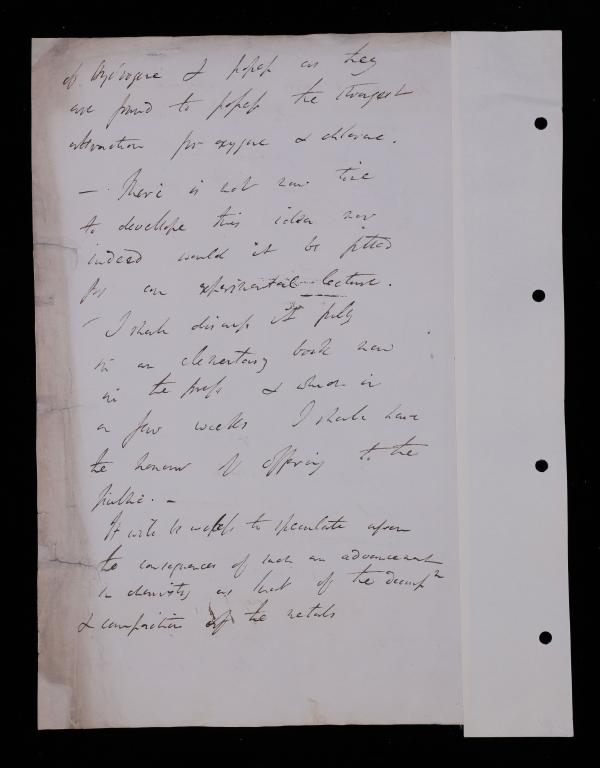 of Hydrogene & possess as they
are found to possess the strongest
attraction for oxygene & chlorine.
— There is not now time
to develope this idea nor
indeed would it be fitted
for an experimental lecture.
I shall discuss it fully
in an elementary book now
in the press & which in
a few weeks I shall have
the honour of offering to the
public. —
It will be useless to speculate upon
the consequences of such an advancement
in chemistry as that of the decompn
& composition of the metals